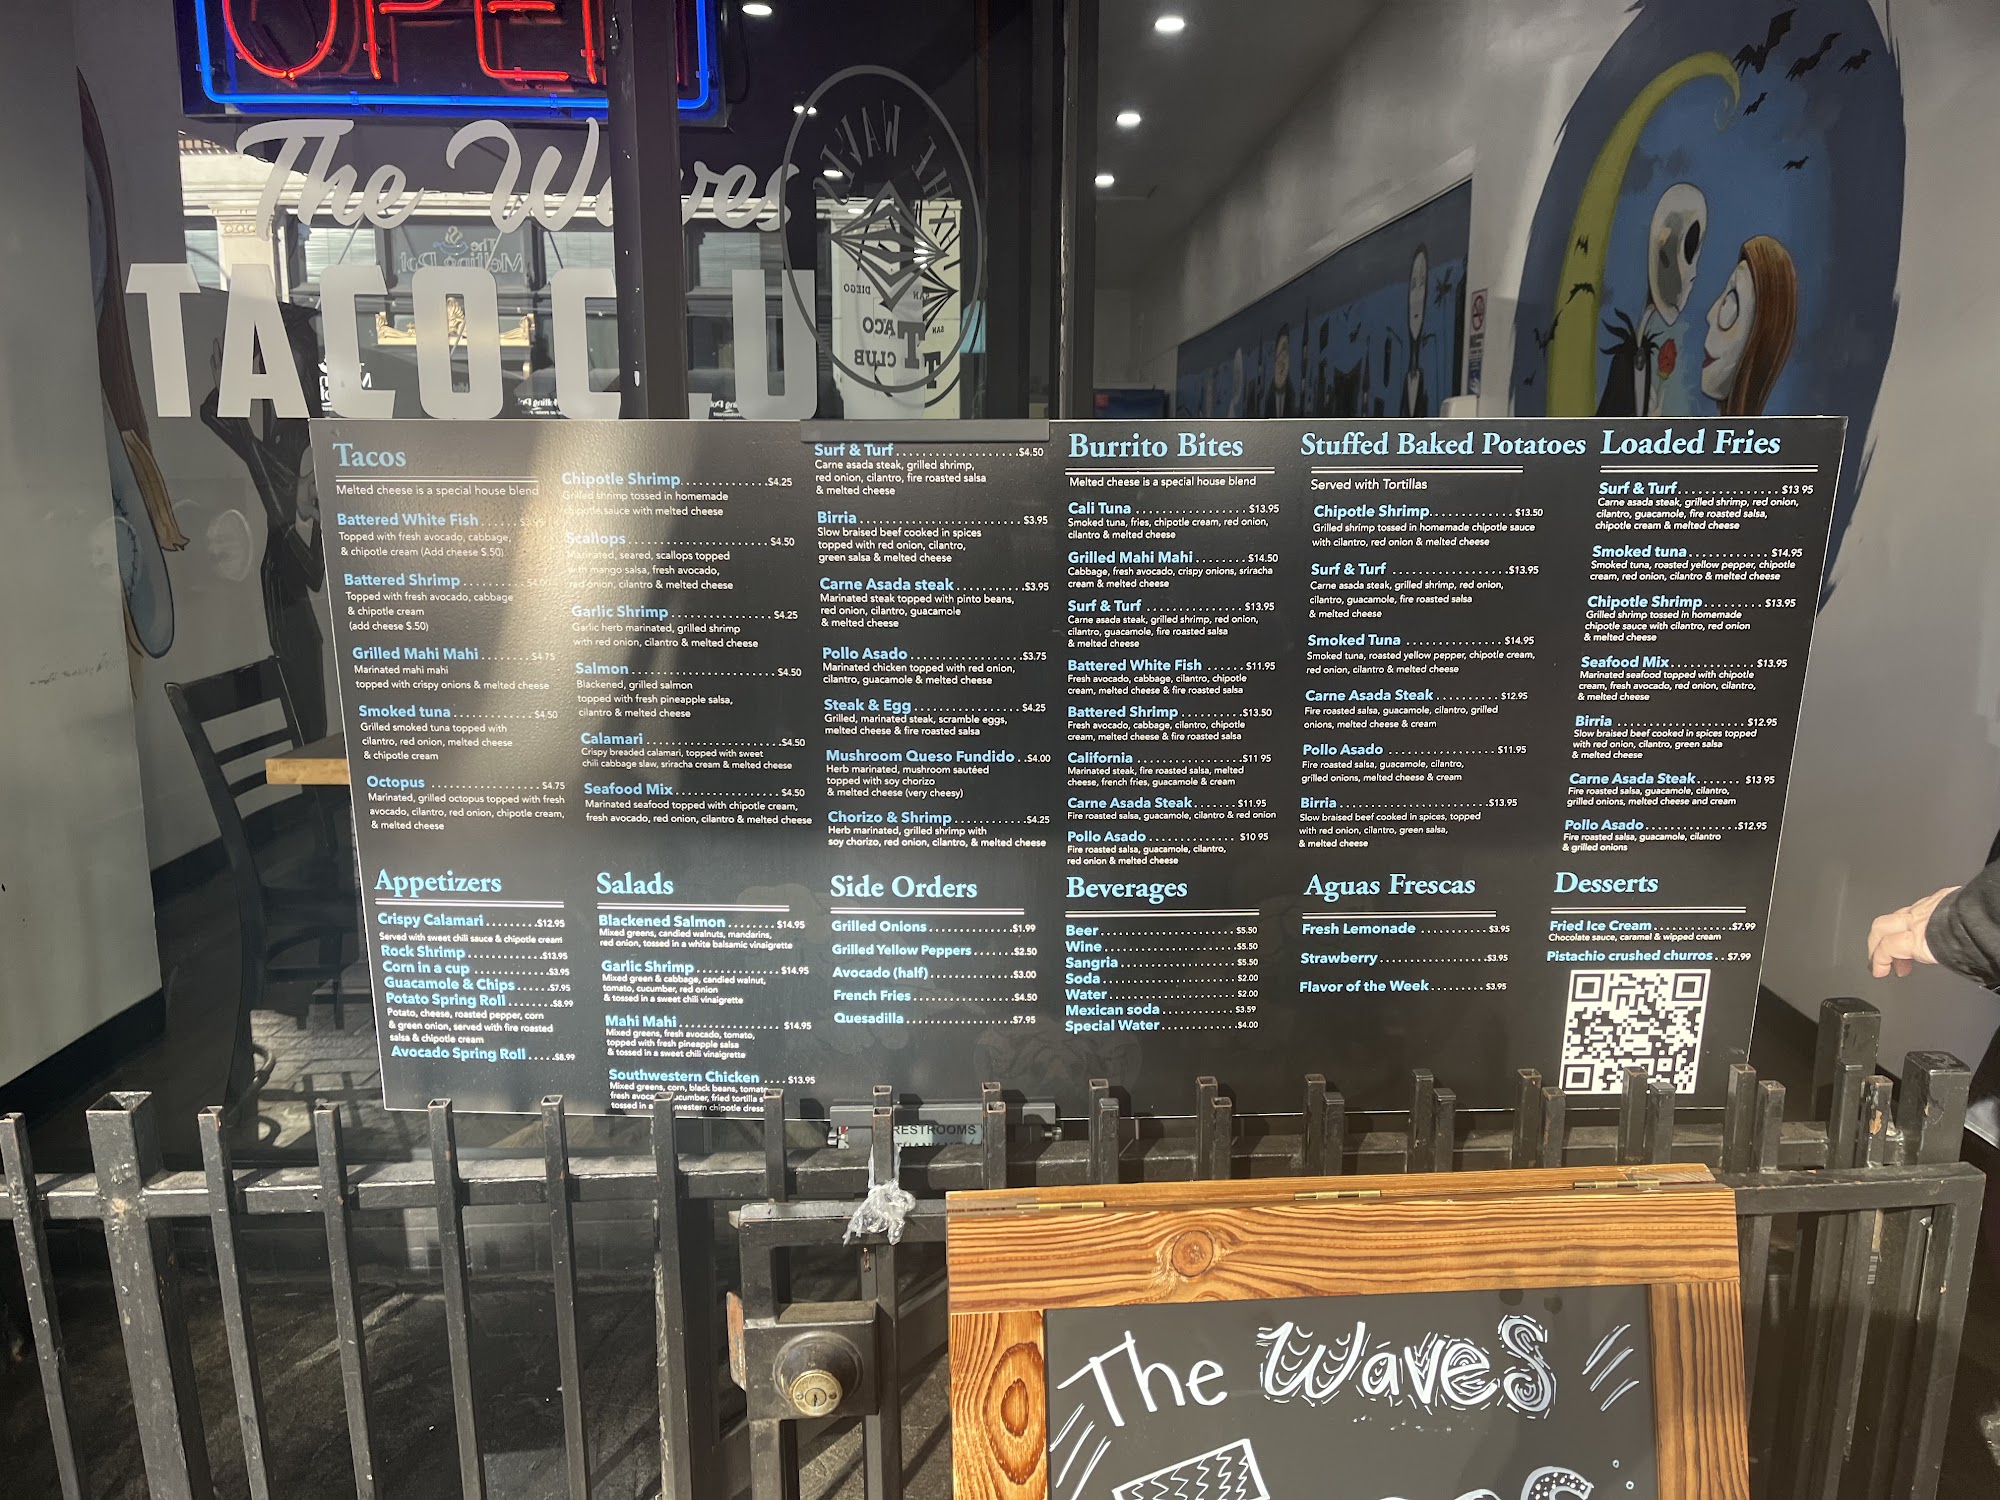 OPEN
The Waves
TACO CLU
THE WAVES
SAN DIEGO
TACO
CLUB
The
Melting Pot
Tacos
Melted cheese is a special house blend
Battered White Fish
Topped with fresh avocado, cabbage,
& chipotle cream (Add cheese $.50)
Battered Shrimp
Topped with fresh avocado, cabbage
& chipotle cream
(add cheese $.50)
Grilled Mahi Mahi ........ $4.75
Marinated mahi mahi
topped with crispy onions & melted cheese
Smoked tuna ........ $4.50
Grilled smoked tuna topped with
cilantro, red onion, melted cheese
& chipotle cream
Octopus ........ $4.75
Marinated, grilled octopus topped with fresh
avocado, cilantro, red onion, chipotle cream,
& melted cheese
Chipotle Shrimp ........ $4.25
Grilled shrimp tossed in homemade
chipotle sauce with melted cheese
Scallops ........ $4.50
Marinated, seared, scallops topped
with mango salsa, fresh avocado,
red onion, cilantro & melted cheese
Garlic Shrimp ........ $4.25
Garlic herb marinated, grilled shrimp
with red onion, cilantro & melted cheese
Salmon ........ $4.50
Blackened, grilled salmon
topped with fresh pineapple salsa,
cilantro & melted cheese
Calamari ........ $4.50
Crispy breaded calamari, topped with sweet
chili cabbage slaw, sriracha cream & melted cheese
Seafood Mix ........ $4.50
Marinated seafood topped with chipotle cream,
fresh avocado, red onion, cilantro & melted cheese
Surf & Turf ........ $4.50
Carne asada steak, grilled shrimp,
red onion, cilantro, fire roasted salsa
& melted cheese
Birria ........ $3.95
Slow braised beef cooked in spices
topped with red onion, cilantro,
green salsa & melted cheese
Carne Asada steak ........ $3.95
Marinated steak topped with pinto beans,
red onion, cilantro, guacamole
& melted cheese
Pollo Asado ........ $3.75
Marinated chicken topped with red onion,
cilantro, guacamole & melted cheese
Steak & Egg ........ $4.25
Grilled, marinated steak, scramble eggs,
melted cheese & fire roasted salsa
Mushroom Queso Fundido . . $4.00
Herb marinated, mushroom sautéed
topped with soy chorizo
& melted cheese (very cheesy)
Chorizo & Shrimp ........ $4.25
Herb marinated, grilled shrimp with
soy chorizo, red onion, cilantro, & melted cheese
Burrito Bites
Melted cheese is a special house blend
Cali Tuna ........ $13.95
Smoked tuna, fries, chipotle cream, red onion,
cilantro & melted cheese
Grilled Mahi Mahi ........ $14.50
Cabbage, fresh avocado, crispy onions, sriracha
cream & melted cheese
Surf & Turf ........ $13.95
Carne asada steak, grilled shrimp, red onion,
cilantro, guacamole, fire roasted salsa
& melted cheese
Battered White Fish ...... $11.95
Fresh avocado, cabbage, cilantro, chipotle
cream, melted cheese & fire roasted salsa
Battered Shrimp ........ $13.50
Fresh avocado, cabbage, cilantro, chipotle
cream, melted cheese & fire roasted salsa
California ........ $11 95
Marinated steak, fire roasted salsa, melted
cheese, french fries, guacamole & cream
Carne Asada Steak ....... $11.95
Fire roasted salsa, guacamole, cilantro & red onion
Pollo Asado ........ $10 95
Fire roasted salsa, guacamole, cilantro,
red onion & melted cheese
Stuffed Baked Potatoes
Served with Tortillas
Chipotle Shrimp ........ $13.50
Grilled shrimp tossed in homemade chipotle sauce
with cilantro, red onion & melted cheese
Surf & Turf ........ $13.95
Carne asada steak, grilled shrimp, red onion,
cilantro, guacamole, fire roasted salsa
& melted cheese
Smoked Tuna ........ $14.95
Smoked tuna, roasted yellow pepper, chipotle cream,
red onion, cilantro & melted cheese
Carne Asada Steak ........ $12.95
Fire roasted salsa, guacamole, cilantro, grilled
onions, melted cheese & cream
Pollo Asado ........ $11.95
Fire roasted salsa, guacamole, cilantro,
grilled onions, melted cheese & cream
Birria ........ $13.95
Slow braised beef cooked in spices, topped
with red onion, cilantro, green salsa,
& melted cheese
Loaded Fries
Surf & Turf ........ $13 95
Carne asada steak, grilled shrimp, red onion,
cilantro, guacamole, fire roasted salsa,
chipotle cream & melted cheese
Smoked tuna ........ $14.95
Smoked tuna, roasted yellow pepper, chipotle
cream, red onion, cilantro & melted cheese
Chipotle Shrimp ........ $13.95
Grilled shrimp tossed in homemade
chipotle sauce with cilantro, red onion
& melted cheese
Seafood Mix ........ $13.95
Marinated seafood topped with chipotle
cream, fresh avocado, red onion, cilantro,
& melted cheese
Birria ........ $12.95
Slow braised beef cooked in spices topped
with red onion, cilantro, green salsa
& melted cheese
Carne Asada Steak ...... $13 95
Fire roasted salsa, guacamole, cilantro,
grilled onions, melted cheese and cream
Pollo Asado ........ $12.95
Fire roasted salsa, guacamole, cilantro
& grilled onions
Appetizers
Crispy Calamari ........ $12.95
Served with sweet chili sauce & chipotle cream
Rock Shrimp ........ $13.95
Corn in a cup ........ $3.95
Guacamole & Chips ...... $7.95
Potato Spring Roll ........ $8.99
Potato, cheese, roasted pepper, corn
& green onion, served with fire roasted
salsa & chipotle cream
Avocado Spring Roll ..... $8.99
Salads
Blackened Salmon ........ $14.95
Mixed greens, candied walnuts, mandarins,
red onion, tossed in a white balsamic vinaigrette
Garlic Shrimp ........ $14.95
Mixed green & cabbage, candied walnut,
tomato, cucumber, red onion
& tossed in a sweet chili vinaigrette
Mahi Mahi ........ $14.95
Mixed greens, fresh avocado, tomato,
topped with fresh pineapple salsa
& tossed in a sweet chili vinaigrette
Southwestern Chicken .... $13.95
Mixed greens, corn, black beans, tomato
fresh avocado, cucumber, fried tortilla
tossed in a southwestern chipotle dress
Side Orders
Grilled Onions ........ $1.99
Grilled Yellow Peppers ...... $2.50
Avocado (half) ........ $3.00
French Fries ........ $4.50
Quesadilla ........ $7.95
Beverages
Beer ........ $5.50
Wine ........ $5.50
Sangria ........ $5.50
Soda ........ $2.00
Water ........ $2.00
Mexican soda ........ $3.59
Special Water ........ $4.00
Aguas Frescas
Fresh Lemonade ........ $3.95
Strawberry ........ $3.95
Flavor of the Week ........ $3.95
Desserts
Fried Ice Cream ........ $7.99
Chocolate sauce, caramel & wipped cream
Pistachio crushed churros . . $7.99
RESTROOMS
The Waves